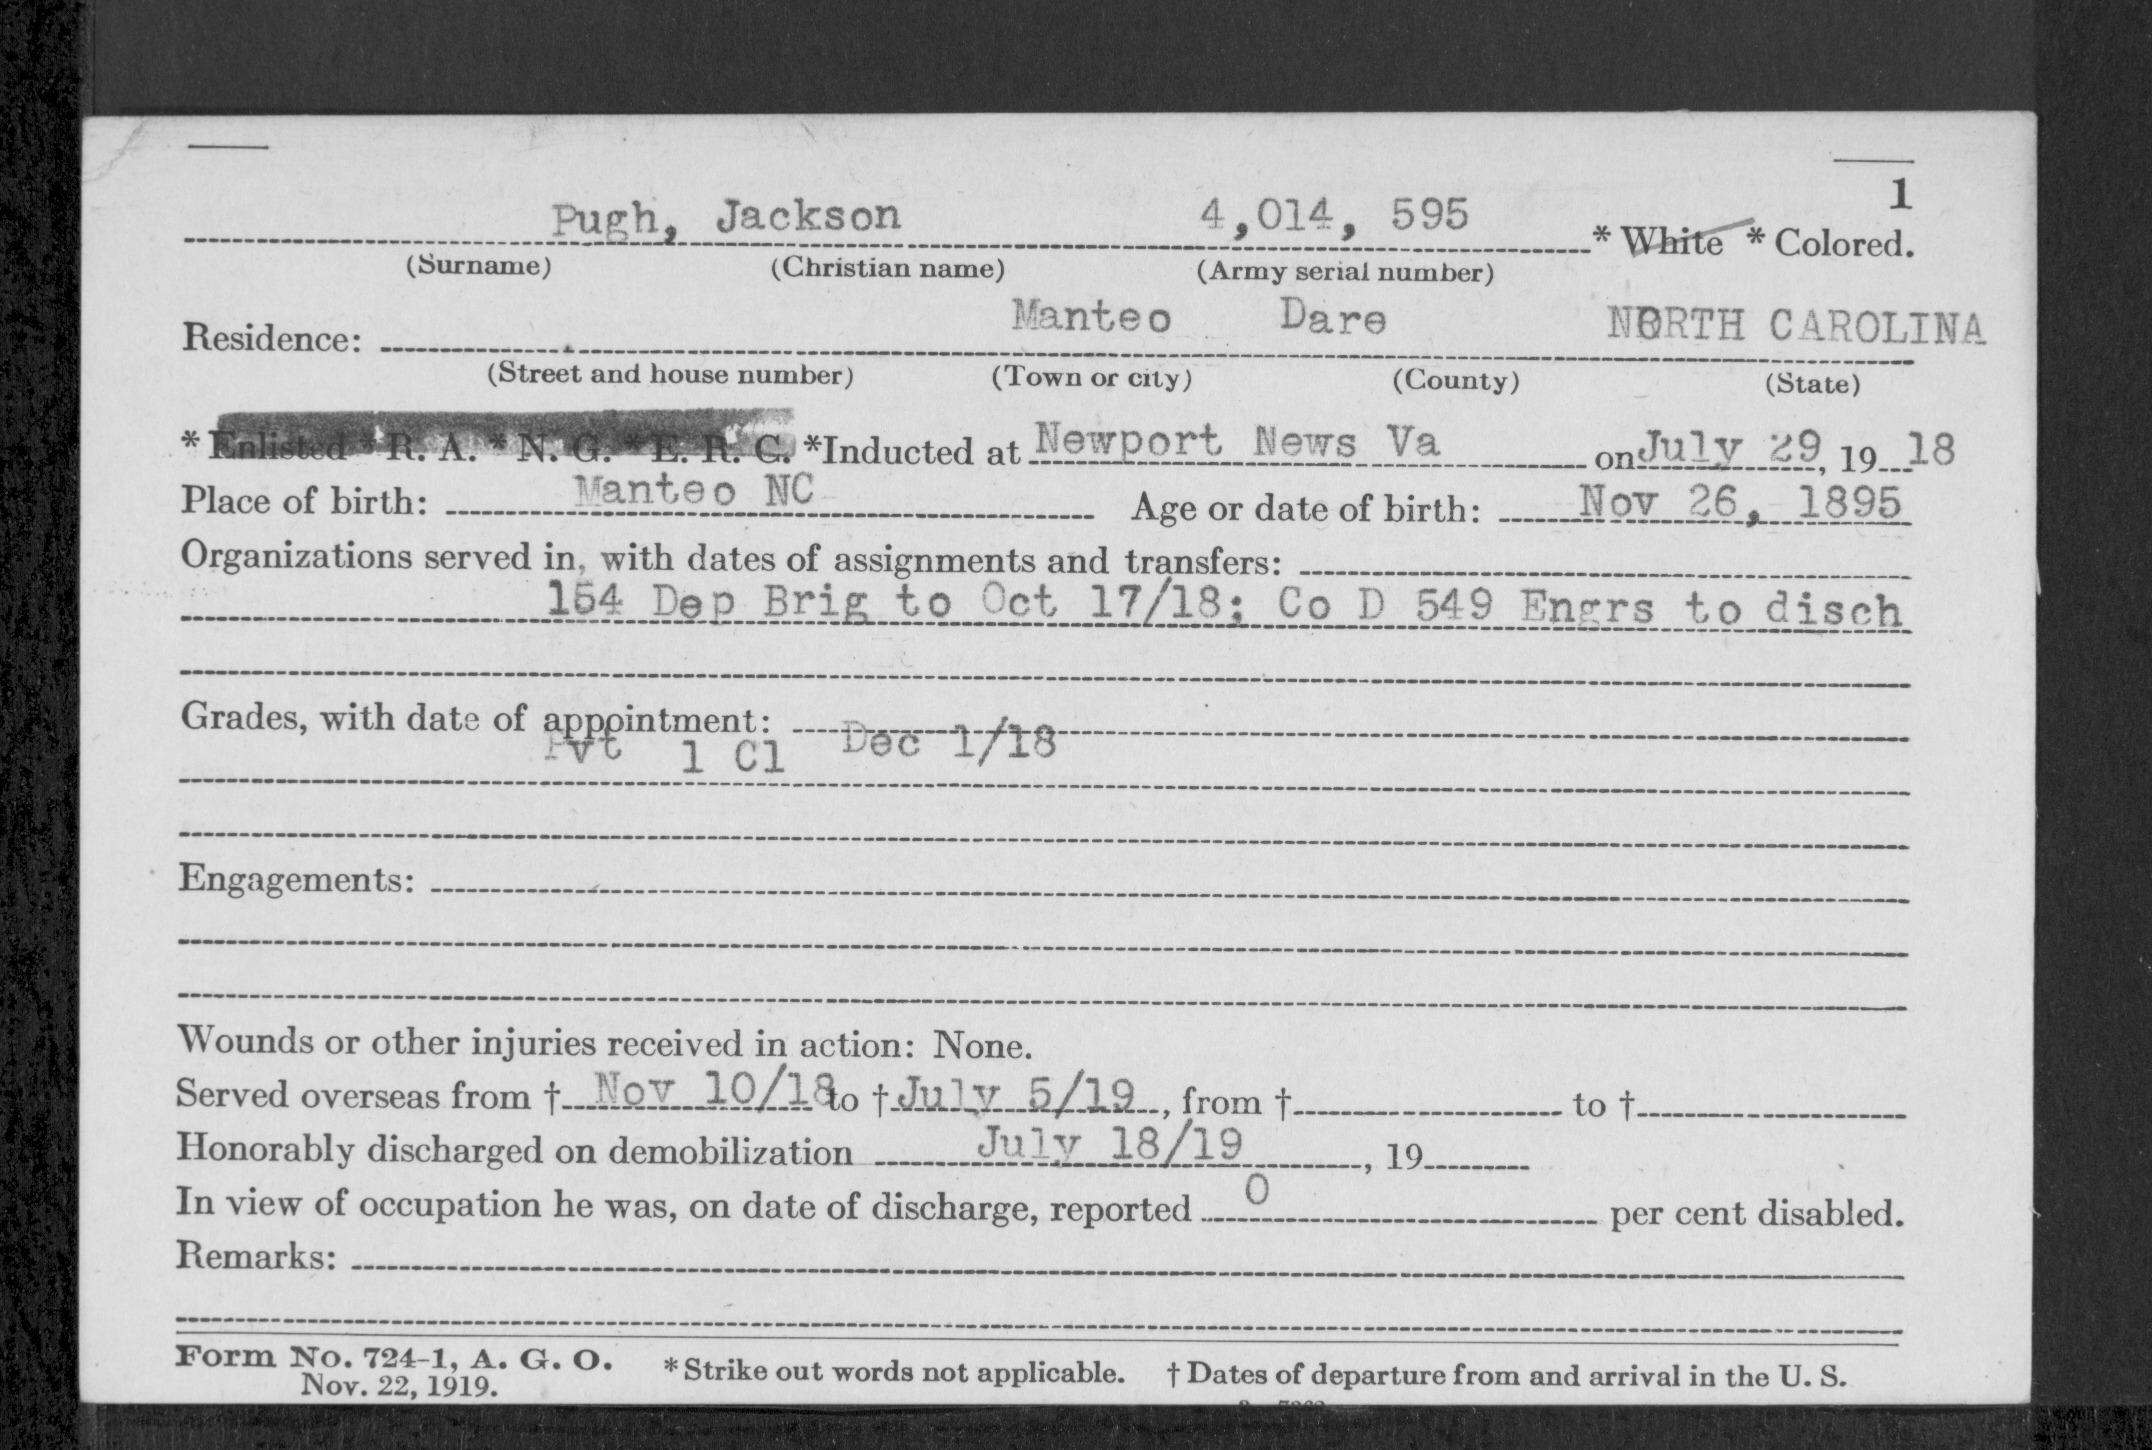 1
Pugh, Jackson 4,014, 595 * White * Colored.
(Surname) (Christian name) (Army serial number)
Residence: Manteo Dare NORTH CAROLINA
(Street and house number) (Town or city) (County) (State)
* Enlisted * R. A. * N. G. * E. R. C. *Inducted at Newport News Va on July 29, 19 18
Place of birth: Manteo NC Age or date of birth: Nov 26, 1895
Organizations served in, with dates of assignments and transfers:
154 Dep Brig to Oct 17/18; Co D 549 Engrs to disch
Grades, with date of appointment:
Pvt 1 Cl Dec 1/18
Engagements:
Wounds or other injuries received in action: None.
Served overseas from † Nov 10/18 to † July 5/19, from † to †
Honorably discharged on demobilization July 18/19, 19
In view of occupation he was, on date of discharge, reported 0 per cent disabled.
Remarks:
Form No. 724-1, A. G. O. * Strike out words not applicable. † Dates of departure from and arrival in the U. S.
Nov. 22, 1919.